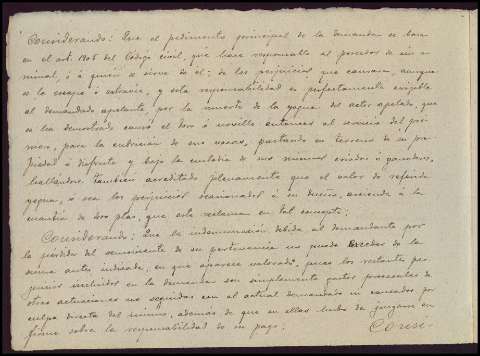 Considerando: Que el pedimento principal de la demanda se basa
en el art. 1905 del Código civil, que hace responsable al poseedor de un a-
nimal, ó á quien se sirve de él, de los perjuicios que causare, aunque
se le escape ó extravíe, y esta responsabilidad es perfectamente exigible
al demandado apelante, por la muerte de la yegua del actor apelado, que
se ha demostrado causó el toro ó novillo entonces al servicio del pri-
mero, para la cubrición de sus vacas, pastando en terreno de su pro-
piedad ó disfrute y bajo la custodia de sus mismos criados ó ganaderos,
hallándose también acreditado plenamente que el valor de referida
yegua, ó sea los perjuicios ocasionados á su dueño, asciende á la
cuantía de dos ptas, que este reclama en tal concepto;
Considerando: Que la indemnización debida al demandante por
la pérdida del semoviente de su pertenencia no puede exceder de la
suma antes indicada, en que aparece valorada, pues los restantes per-
juicios incluidos en la demanda son simplemente gastos procesales de
otras actuaciones no seguidas con el actual demandado ni causados por
culpa directa del mismo, además de que en ellas hubo de juzgarse en
firme sobre la responsabilidad de su pago;
Conse-